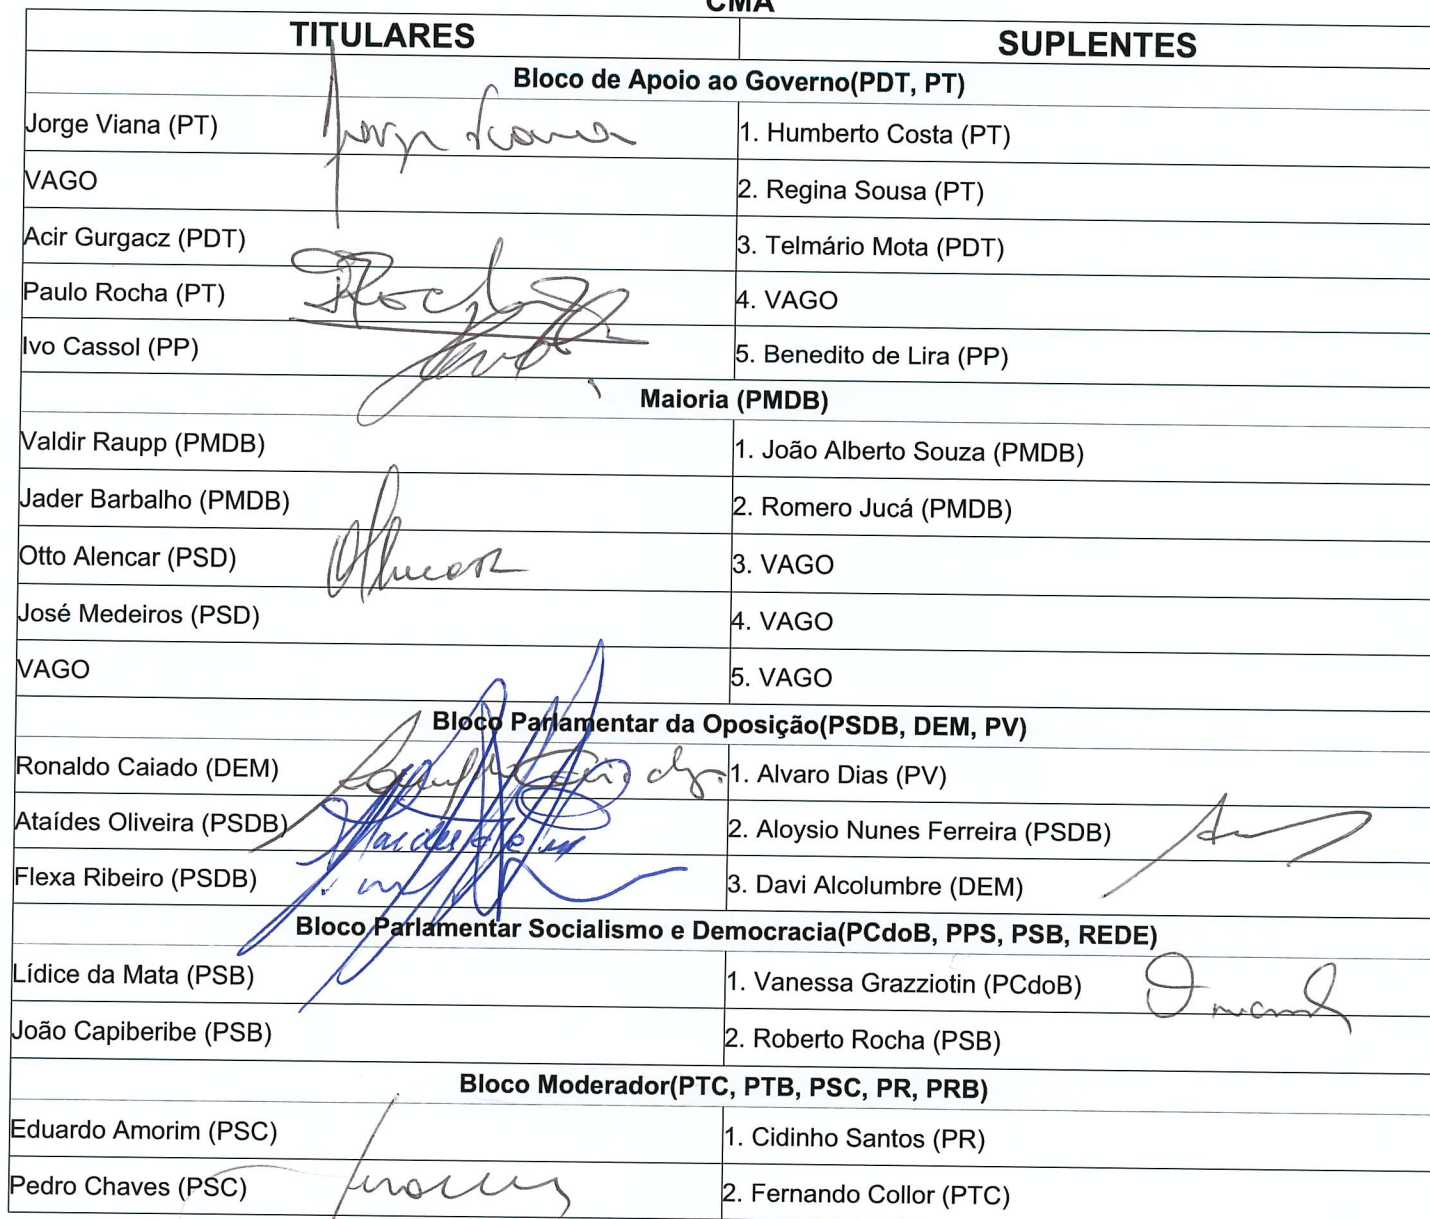 CMA
TITULARES SUPLENTES
Bloco de Apoio ao Governo(PDT, PT)
Jorge Viana (PT) Jorge Viana 1. Humberto Costa (PT)
VAGO 2. Regina Sousa (PT)
Acir Gurgacz (PDT) 3. Telmário Mota (PDT)
Paulo Rocha (PT) PRocha 4. VAGO
Ivo Cassol (PP) 5. Benedito de Lira (PP)
Maioria (PMDB)
Valdir Raupp (PMDB) 1. João Alberto Souza (PMDB)
Jader Barbalho (PMDB) 2. Romero Jucá (PMDB)
Otto Alencar (PSD) 3. VAGO
José Medeiros (PSD) 4. VAGO
VAGO 5. VAGO
Bloco Parlamentar da Oposição(PSDB, DEM, PV)
Ronaldo Caiado (DEM) Ronaldo Caiado 1. Alvaro Dias (PV)
Ataídes Oliveira (PSDB) 2. Aloysio Nunes Ferreira (PSDB)
Flexa Ribeiro (PSDB) 3. Davi Alcolumbre (DEM)
Bloco Parlamentar Socialismo e Democracia(PCdoB, PPS, PSB, REDE)
Lídice da Mata (PSB) 1. Vanessa Grazziotin (PCdoB)
João Capiberibe (PSB) 2. Roberto Rocha (PSB)
Bloco Moderador(PTC, PTB, PSC, PR, PRB)
Eduardo Amorim (PSC) 1. Cidinho Santos (PR)
Pedro Chaves (PSC) 2. Fernando Collor (PTC)